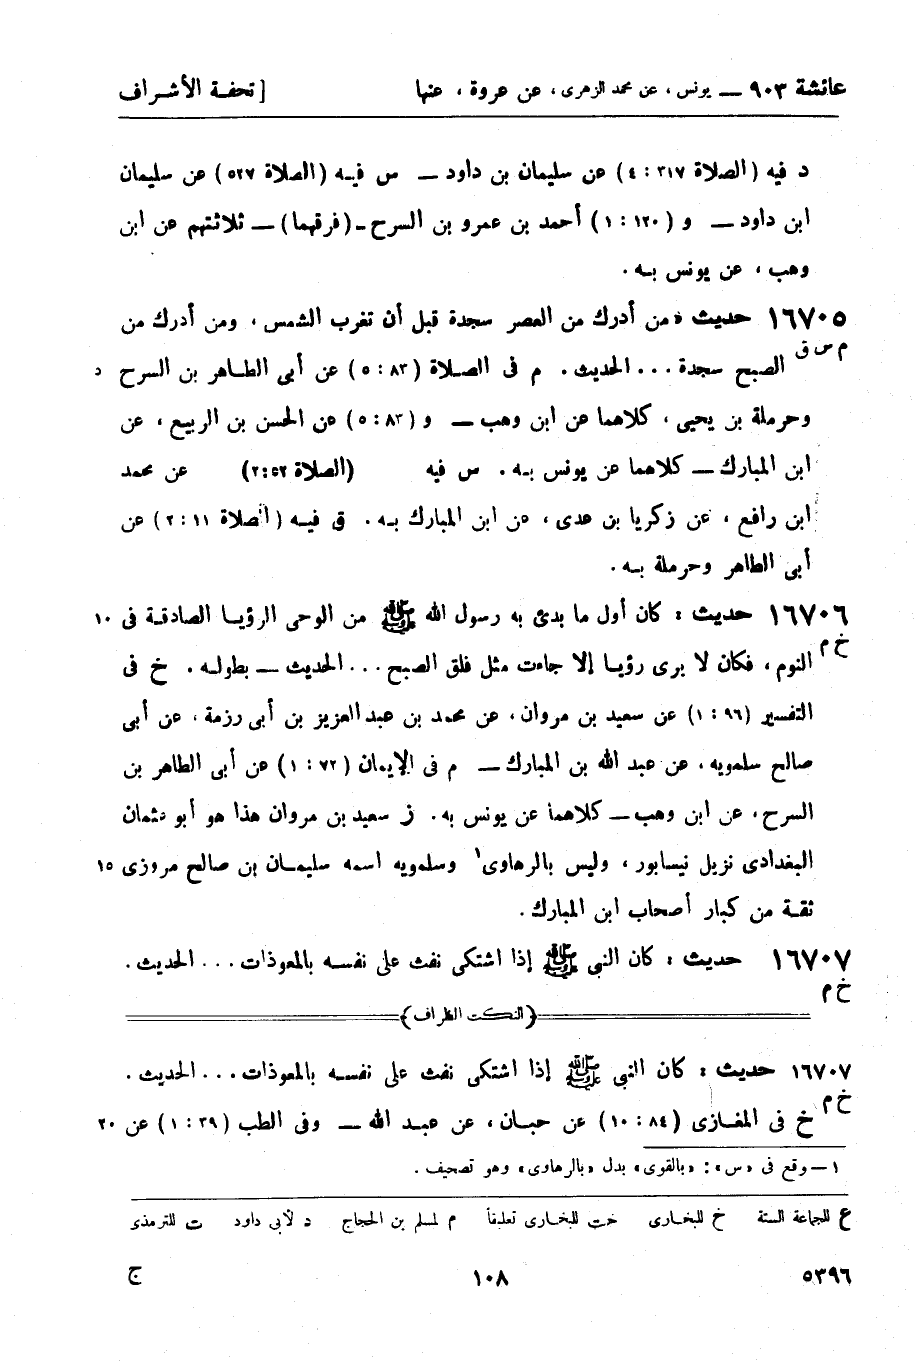 عائشة ٩٠٣ — يونس ، عن محمد الزهرى ، عن عروة ، عنها [ تحفة الأشراف
د فيه (الصلاة ٣١٧ : ٤) عن سليمان بن داود — س فيه (الصلاة ٥٢٧) عن سليمان
ابن داود — و (١٢٠ : ١) أحمد بن عمرو بن السرح - (فرقهما) — ثلاثتهم عن ابن
وهب ، عن يونس به .
١٦٧٠٥ حديث : من أدرك من العصر سجدة قبل أن تغرب الشمس ، ومن أدرك من
م س ق
الصبح سجدة ... الحديث . م فى الصلاة (٨٣ : ٥) عن أبى الطاهر بن السرح ٥
وحرملة بن يحيى ، كلاهما عن ابن وهب — و (٨٣ : ٥) عن الحسن بن الربيع ، عن
ابن المبارك — كلاهما عن يونس به . س فيه (الصلاة ٥٢ : ٢) عن محمد
ابن رافع ، عن زكريا بن عدى ، عن ابن المبارك به . ق فيه (الصلاة ١١ : ٢) عن
أبى الطاهر وحرملة به .
١٦٧٠٦ حديث : كان أول ما بدئ به رسول الله ﷺ من الوحى الرؤيا الصادقة فى ١٠
خ م
النوم ، فكان لا يرى رؤيا إلا جاءت مثل فلق الصبح ... الحديث — بطوله . خ فى
التفسير (٩٦ : ١) عن سعيد بن مروان ، عن محمد بن عبد العزيز بن أبى رزمة ، عن أبى
صالح سلمويه ، عن عبد الله بن المبارك — م فى الإيمان (٧٢ : ١) عن أبى الطاهر بن
السرح ، عن ابن وهب — كلاهما عن يونس به . ز سعيد بن مروان هذا هو أبو عثمان
البغدادى نزيل نيسابور ، وليس بالرهاوى ١ وسلمويه اسمه سليمان بن صالح مروزى ١٥
ثقة من كبار أصحاب ابن المبارك .
١٦٧٠٧ حديث : كان النبى ﷺ إذا اشتكى نفث على نفسه بالمعوذات ... الحديث .
خ م
(النكت الظراف)
١٦٧٠٧ حديث : كان النبى ﷺ إذا اشتكى نفث على نفسه بالمعوذات ... الحديث .
خ م
خ فى المغازى (٨٤ : ١٠) عن حبان ، عن عبد الله — وفى الطب (٣٩ : ١) عن ٢٠
١ — وقع فى «س» : «بالقوى» بدل «بالرهاوى» وهو تصحيف .
ع للجماعة الستة خ للبخارى خت للبخارى تعليقاً م لمسلم بن الحجاج د لأبى داود ت للترمذى
٥٣٩٦ ١٠٨ ج